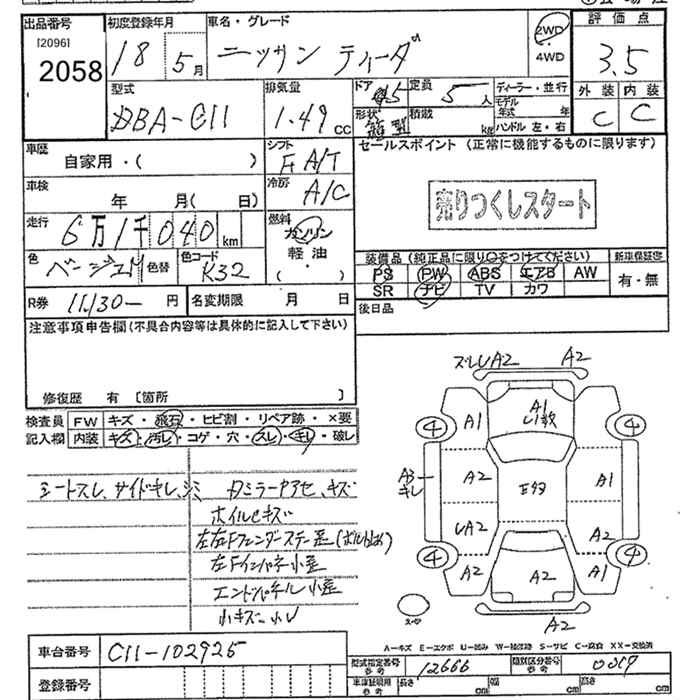 出品番号 初度登録年月 車名・グレード 評価点
[2096] 2058 18 5月 ニッサン ティーダ 2WD 4WD 3.5
型式 DBA-C11 排気量 1.49 CC
ドア 5 定員 5人 ディーラー・並行
形状 積載 kg モデル年式 年 ハンドル 左・右
外装 内装
C C
車歴 自家用・( ) シフト F A/T
セールスポイント (正常に機能するものに限ります)
売りつくしスタート
車検 年 月( 日) 冷房 A/C
走行 6万1千040km 燃料 ガソリン 軽油 ( ・ )
色 ベージュM 色替 色コード K32
装備品(純正品に限り○をつけてください) 新車保証書
PS PW ABS エアB AW 有・無
SR ナビ TV カワ
R券 11,130- 円 名変期限 月 日
後日品
注意事項申告欄(不具合内容等は具体的に記入して下さい)
修復歴 有 〔箇所 〕
検査員記入欄 FW キズ・飛石・ヒビ割・リペア跡・×要
内装 キズ・汚レ・コゲ・穴・スレ・キレ・破レ
シートスレ、サイドキレ、シミ
ミラーアセ、キズ
ホイルキズ
左右Fフェンダーステー歪
左Fインパネ小歪
エンドパネル小歪
小キズ、小U
ズレUA2 A2
A1
A1 4 4
A3 キレ A2 A1
UA2 A2
4 4
A2 A2 A1
A2
A-キズ E-エクボ U-凹み W-補修跡 S-サビ C-腐食 XX-交換済
車台番号 C11-102925
型式指定番号 参考 12666 類別区分番号 参考
登録番号
車庫証明用 参考 長さ cm 幅 cm 高さ cm